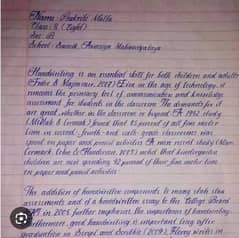 Name : Prakriti Malla
Class : 8 (Eight)
Sec : B
School :
Handwriting is an essential skill for both children and adults
(Feder & Majnemer, 2007). Even in the age of technology, it
remains the primary tool of communication and knowledge
assessment for students in the classroom. The demands for it
are great, whether in the classroom or beyond. A 1992 study
(McHale & Cermak) found that 85 percent of all fine motor
time in second- fourth- and sixth- grade classrooms was
spent on paper and pencil activities. A more recent study (Marr,
Cermak, Cohn & Henderson, 2003) noted that kindergarten
children are now spending 42 percent of their fine motor time
on paper and pencil activities.
The addition of handwritten components to many state
assessments and of a handwritten essay to the College Board
SAT in 2005 further emphasize the importance of handwriting.
Furthermore, good handwriting is important long after
graduation